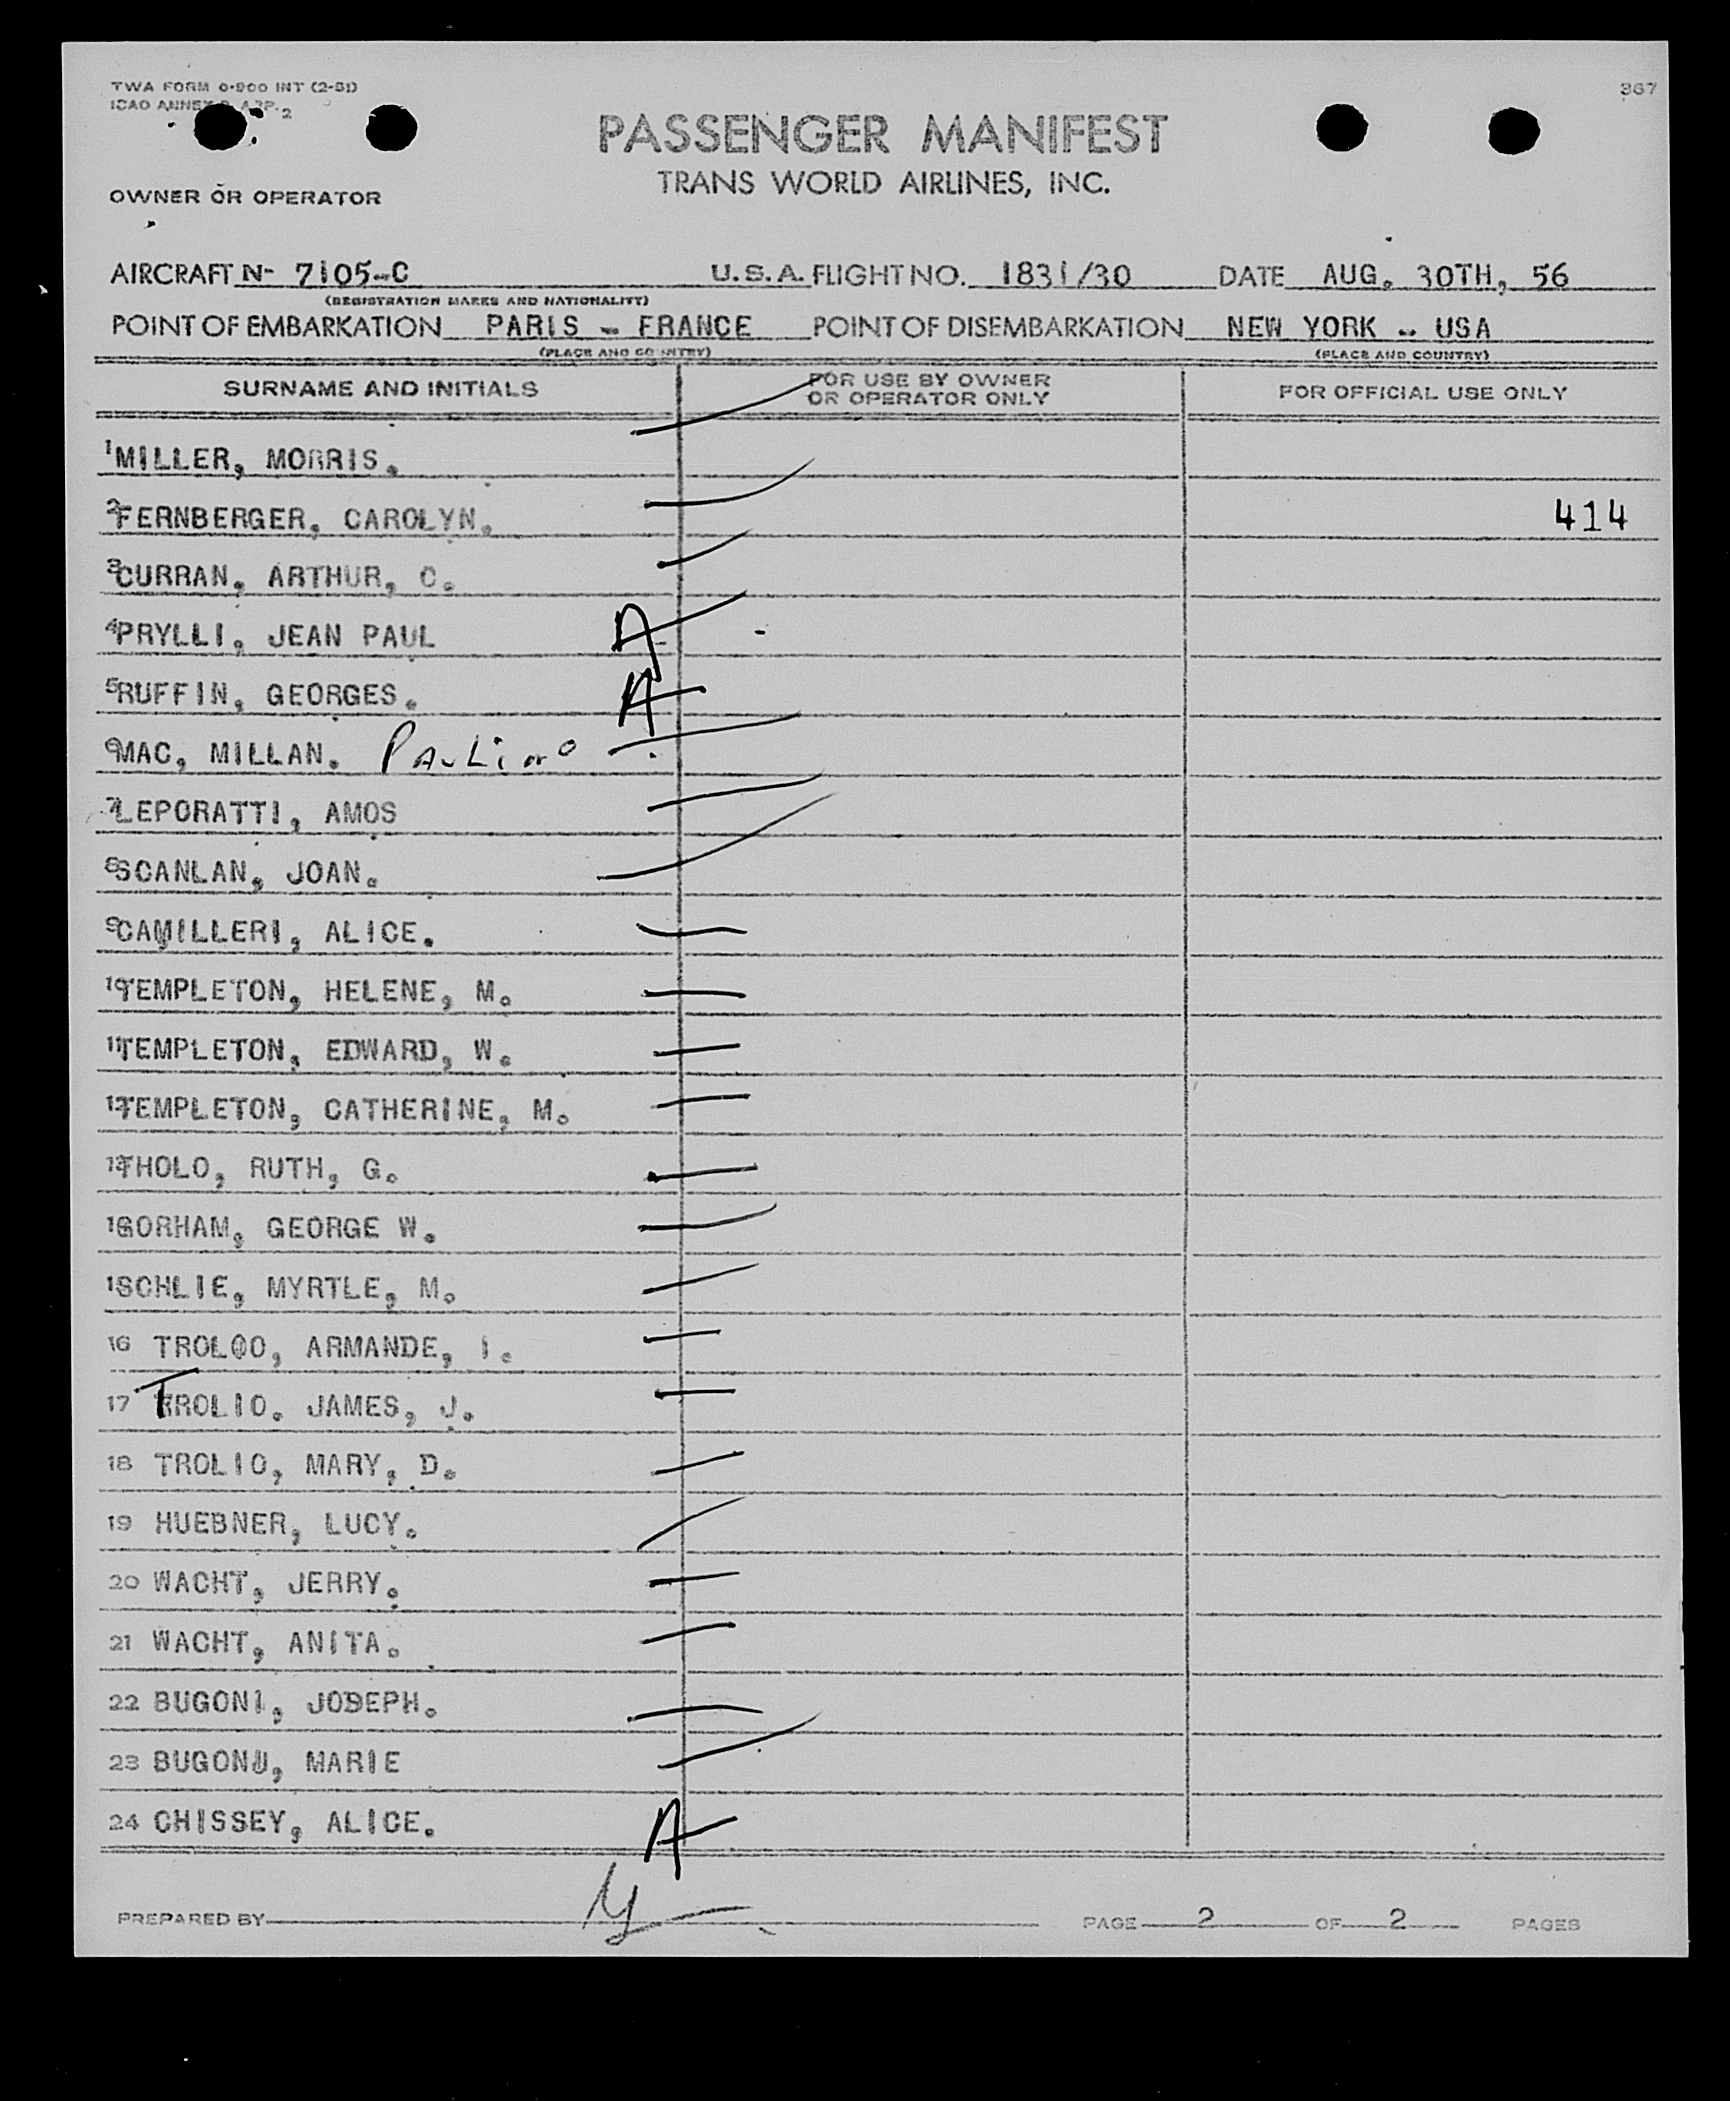 TWA FORM 0-900 INT (2-51)
ICAO ANNEX 9 APP. 2
367
PASSENGER MANIFEST
TRANS WORLD AIRLINES, INC.
OWNER OR OPERATOR
AIRCRAFT N- 7105-C U.S.A. FLIGHT NO. 1831/30 DATE AUG. 30TH, 56
(REGISTRATION MARKS AND NATIONALITY)
POINT OF EMBARKATION PARIS - FRANCE POINT OF DISEMBARKATION NEW YORK - USA
(PLACE AND COUNTRY) (PLACE AND COUNTRY)
SURNAME AND INITIALS FOR USE BY OWNER OR OPERATOR ONLY FOR OFFICIAL USE ONLY
1 MILLER, MORRIS.
2 FERNBERGER, CAROLYN. 414
3 CURRAN, ARTHUR, C.
4 PRYLLI, JEAN PAUL A
5 RUFFIN, GEORGES. A
6 MAC, MILLAN.
7 LEPORATTI, AMOS
8 SCANLAN, JOAN.
9 CAMILLERI, ALICE.
10 TEMPLETON, HELENE, M.
11 TEMPLETON, EDWARD, W.
12 TEMPLETON, CATHERINE, M.
13 THOLO, RUTH, G.
14 GORHAM, GEORGE W.
15 SCHLIE, MYRTLE, M.
16 TROLIO, ARMANDE, I.
17 TROLIO. JAMES, J.
18 TROLIO, MARY, D.
19 HUEBNER, LUCY.
20 WACHT, JERRY.
21 WACHT, ANITA.
22 BUGONI, JOSEPH.
23 BUGONI, MARIE
24 CHISSEY, ALICE. A
PREPARED BY PAGE 2 OF 2 PAGES